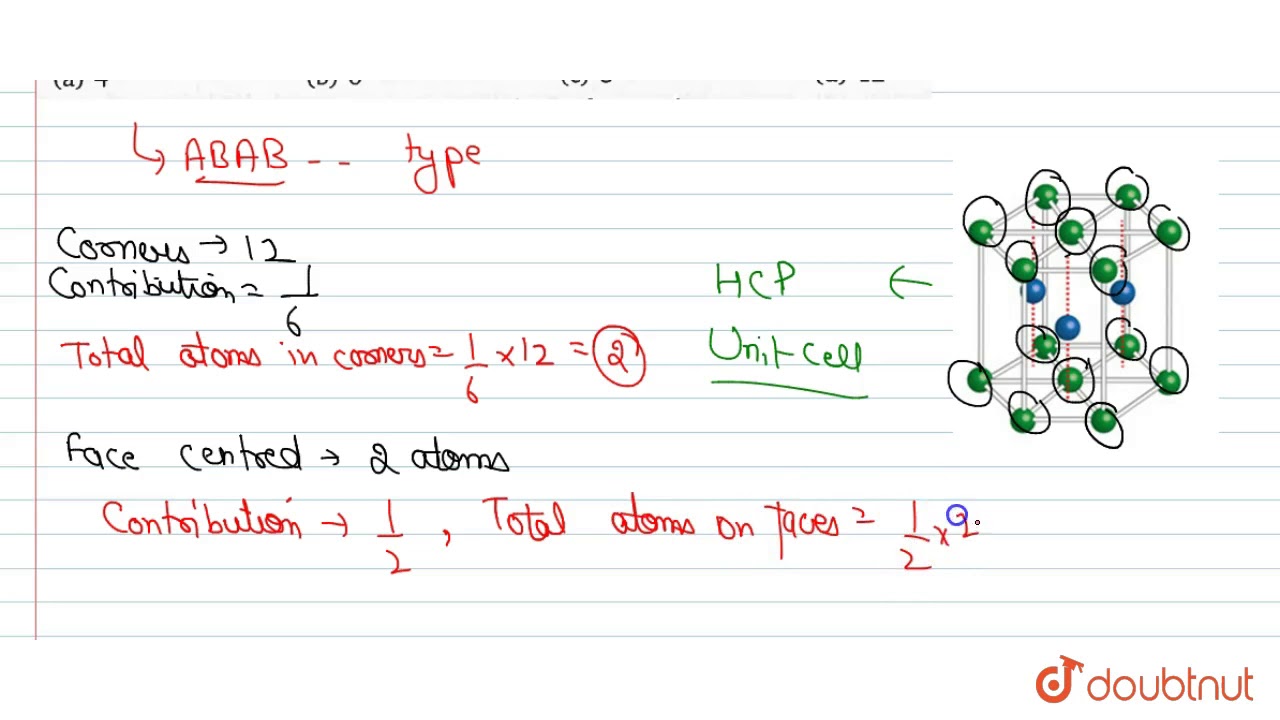 ABAB -- type
Corners → 12
Contribution = 1/6
Total atoms in corners = 1/6 × 12 = 2
HCP ←
Unit cell
Face centred → 2 atoms
Contribution → 1/2 , Total atoms on faces = 1/2 × 2
doubtnut